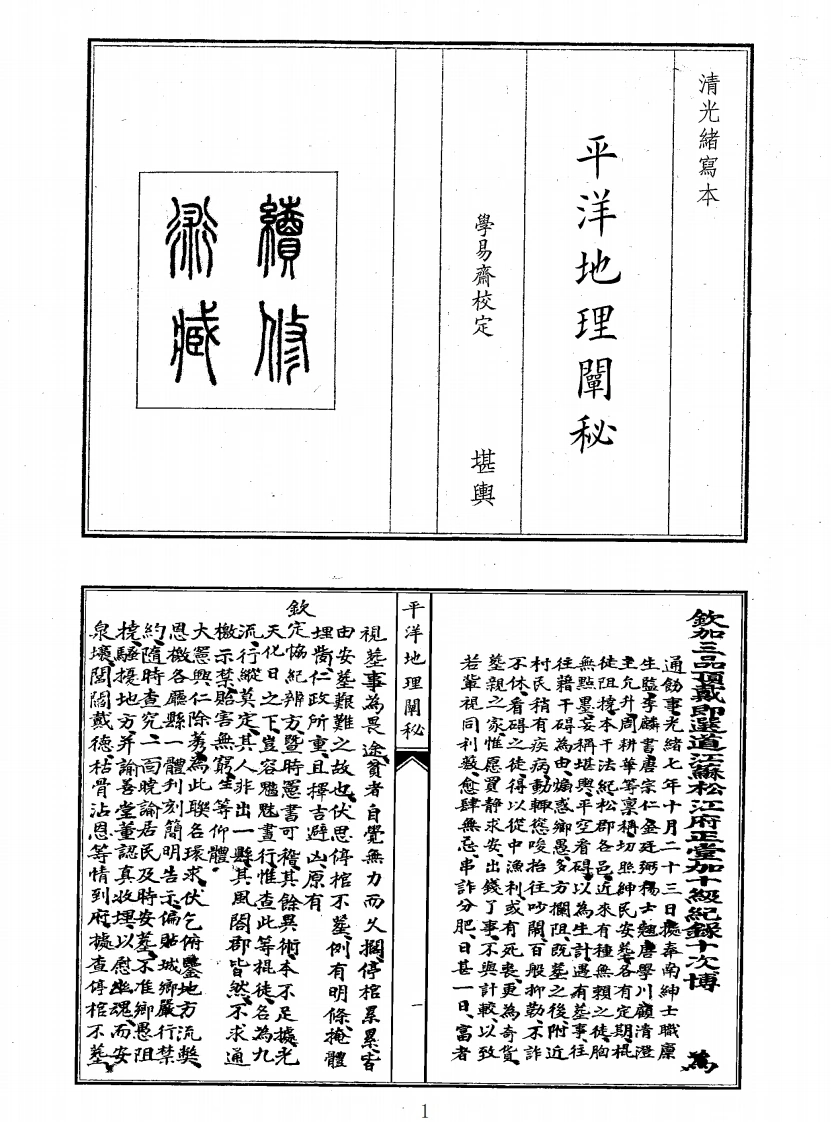 清光緒寫本
平洋地理闡秘
學易齋校定 堪輿
續修
術藏
欽加三品頂戴即選道江蘇松江府正堂加十級紀錄十次博 為
通飭事光緒七年十月二十三日據奉南紳士職廩
生監李麟書唐宗仁金廷弼楊士翹唐學川顧清澄
王允升周耕華等稟稱切照紳民安墓各有定期棍
徒阻撓本干法紀松郡各邑近來有種無賴之徒胸
無點墨妄稱堪輿平空看碍以為生計遇有墓事往
往藉干碍為由煽惑鄉愚多方攔阻既墓之後附近
村民稍有疾病動輒慫唆抬往吵鬧百般抑勒不詐
不休看碍之徒得以從中漁利或有死喪更為奇貨
墓親之家惟愿買靜求安出錢了事不與計較以致
若輩視同利藪愈肆無忌串詐分肥日甚一日富者
平洋地理闡秘
一
視墓事為畏途貧者自覺無力而久擱停棺累累皆
由安墓艱難之故也伏思停棺不墓例有明條掩體
埋胔仁政所重且擇吉避凶原有
欽定協紀辨方暨時憲書可稽其餘異術本不足據光
天化日之下豈容魑魅晝行惟查此等棍徒名為九
流行蹤莫定其人非出一縣其風閤郡皆然不求通
檄示禁貽害無窮生等仰體
大憲興仁除莠為此聯名環求伏乞俯鑒地方流獘
恩檄各廳縣一體刊刻簡明告示徧貼城鄉嚴行禁
約隨時查究一面曉諭居民及時安墓不准鄉愚阻
撓騷擾地方并諭善堂董認真收埋以慰幽魂而安
泉壤閭閻戴德枯骨沾恩等情到府據查停棺不墓
1